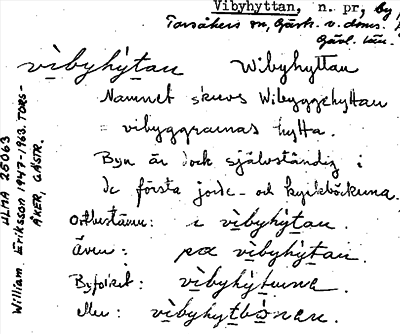 Vibyhyttan, n. pr, by
Torsåkers sn, Gästr. v. doms.
Gävl. län.
vìbyhỳtan Wibyhyttan
Namnet skrevs Wibyggehyttan
= vibyggrarnas hytta.
Byn är dock självständig i
de första jorde- och kyrkböckerna.
Ortbestämn: i vìbyhỳtan.
Även: på vìbyhỳtan.
Byfolket: vìbyhỳtarna
eller: vìbyhỳtbönan.
ULMA 25063
William Eriksson 1947-1963. TORS-
ÅKER, GÄSTR.